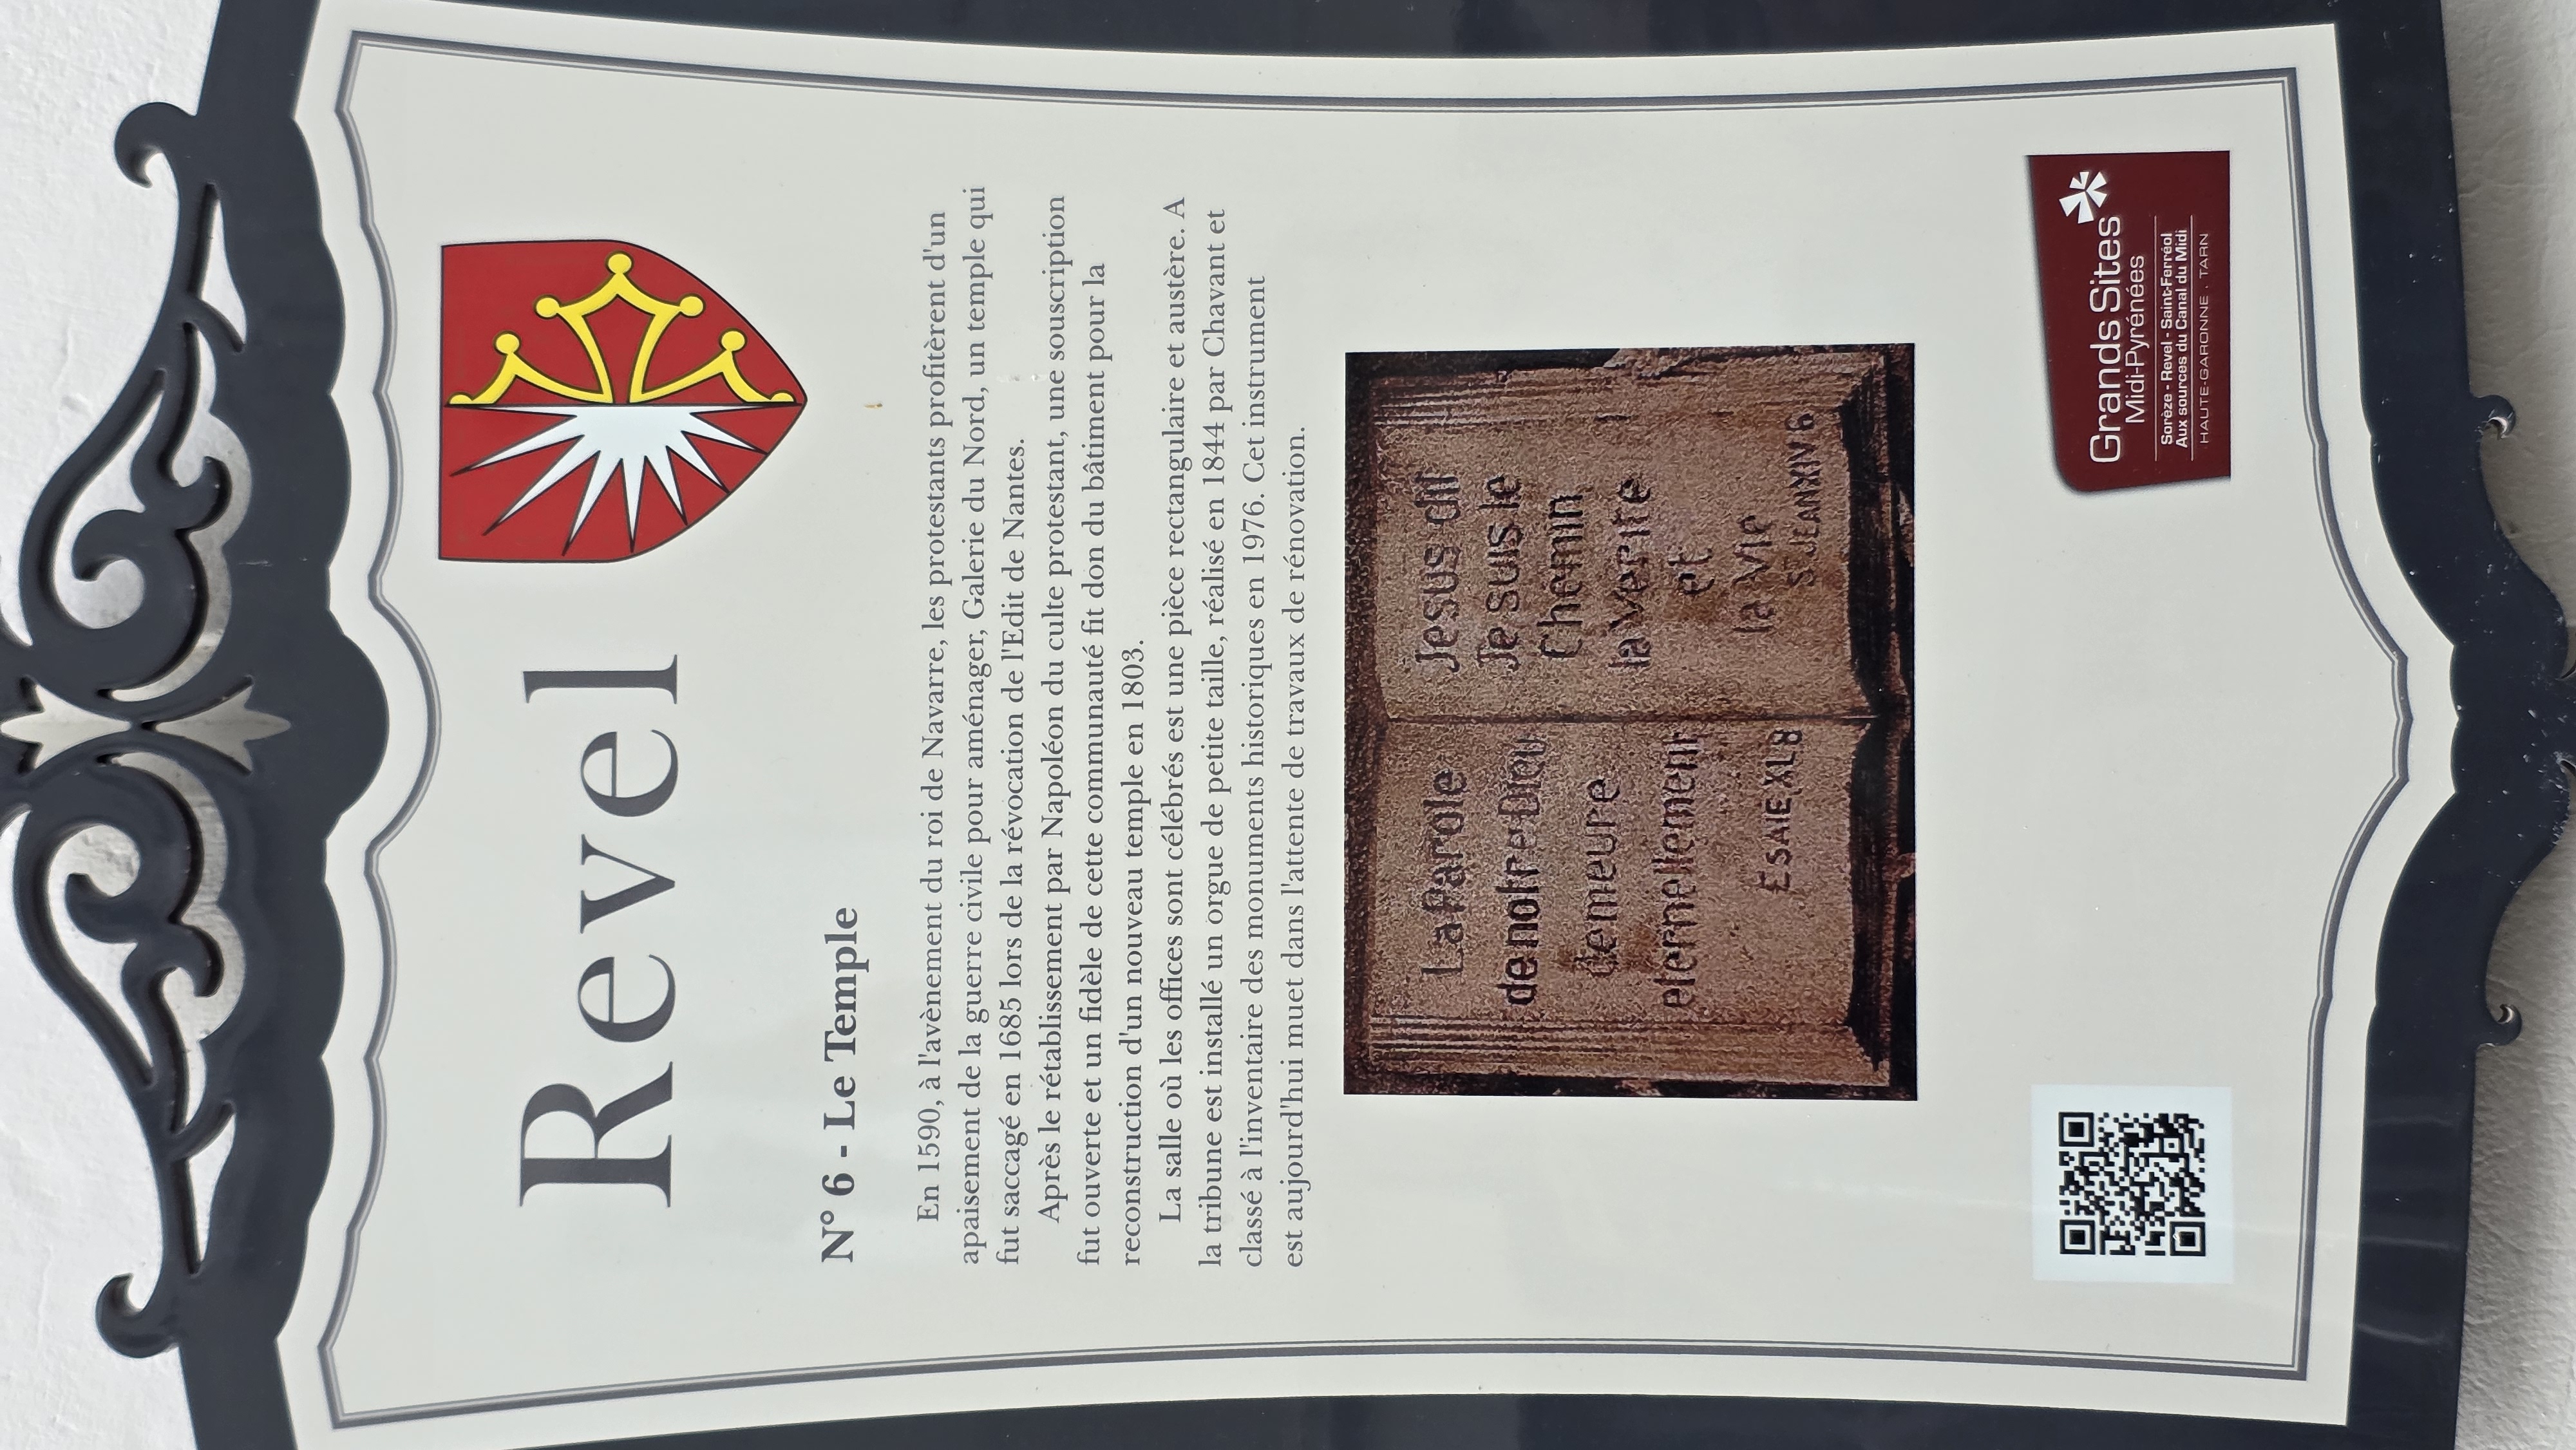 Revel
N° 6 - Le Temple
En 1590, à l'avènement du roi de Navarre, les protestants profitèrent d'un
apaisement de la guerre civile pour aménager, Galerie du Nord, un temple qui
fut saccagé en 1685 lors de la révocation de l'Edit de Nantes.
Après le rétablissement par Napoléon du culte protestant, une souscription
fut ouverte et un fidèle de cette communauté fit don du bâtiment pour la
reconstruction d'un nouveau temple en 1803.
La salle où les offices sont célébrés est une pièce rectangulaire et austère. A
la tribune est installé un orgue de petite taille, réalisé en 1844 par Chavant et
classé à l'inventaire des monuments historiques en 1976. Cet instrument
est aujourd'hui muet dans l'attente de travaux de rénovation.
La Parole
de notre Dieu
demeure
eternellement
ESAIE XL 8
Jesus dit
Je suis le
Chemin
la Verite
et
la Vie
St JEAN XIV 6
Grands Sites
Midi-Pyrénées
Sorèze - Revel - Saint-Ferréol
Aux sources du Canal du Midi
HAUTE-GARONNE . TARN